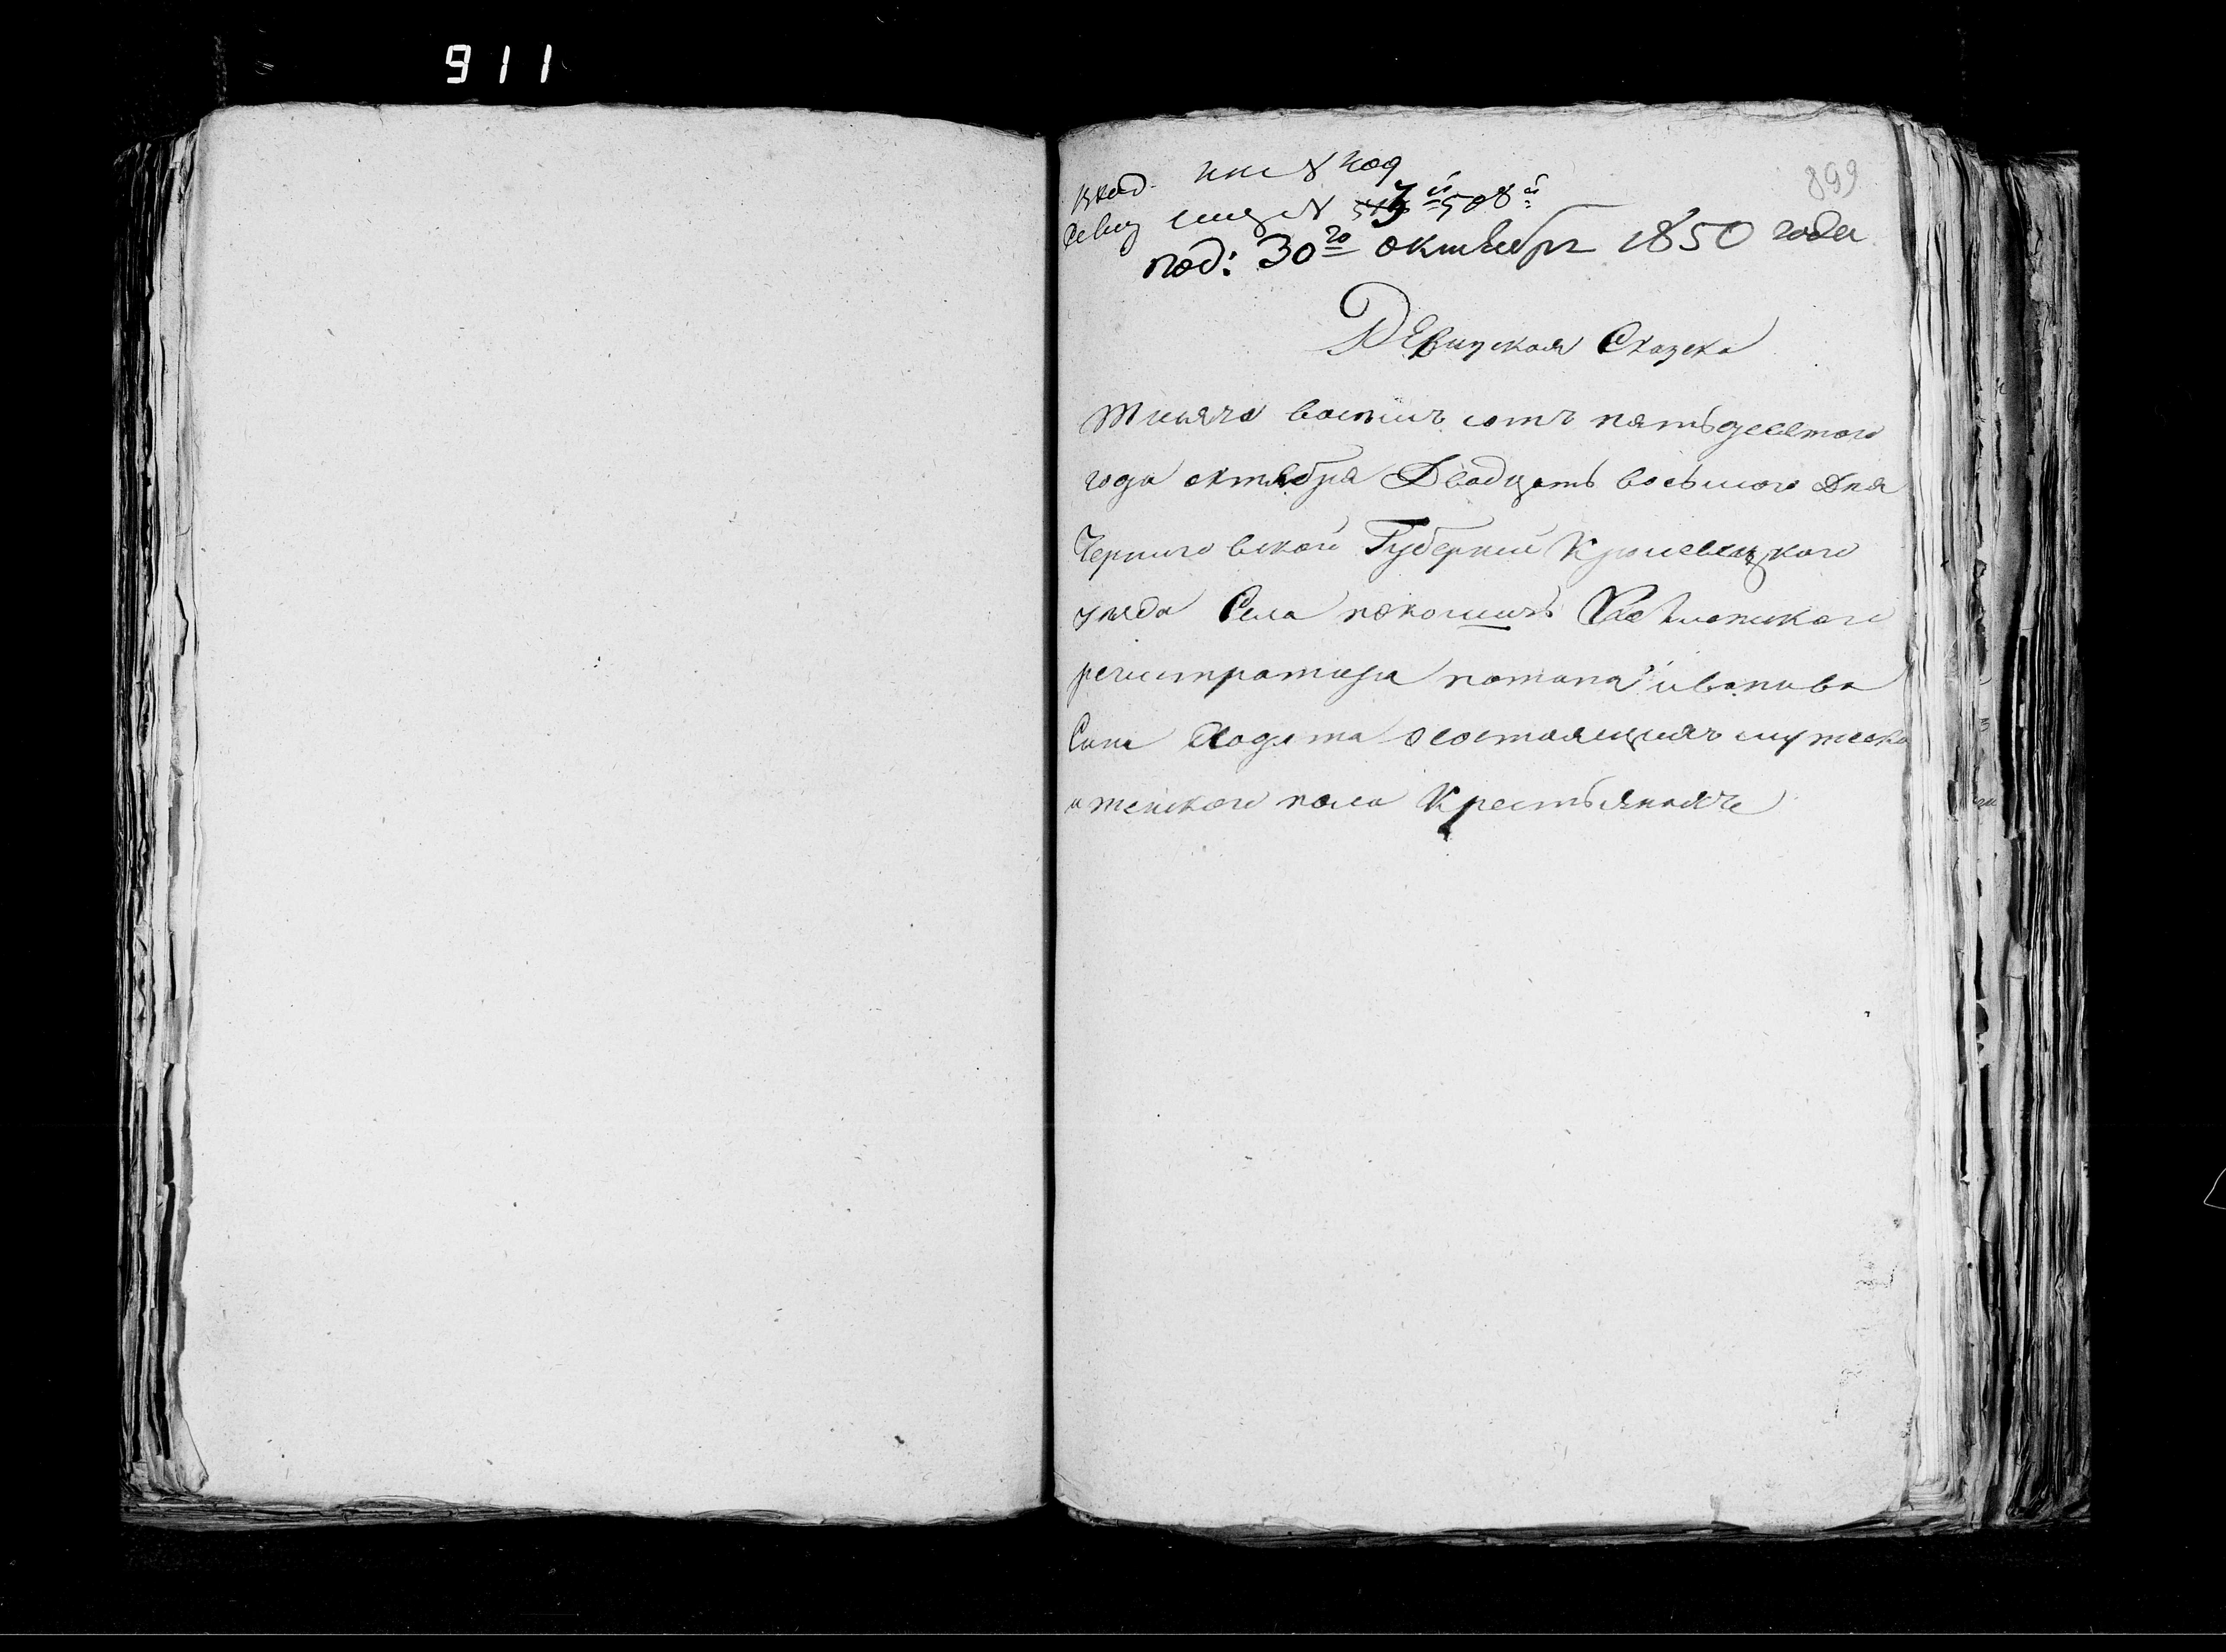 911
899
вход. кни № 409
ревиз № 508й
под: 30го октября 1850 года
Ревизская Сказка
Тысяча восемь сотъ пятьдесятого
года октября Двадцать восьмого Дня
Черниговской Губерний Кролевецкого
уезда Села покошичъ
регистратора потапа иванова
Сина о состоящихъ мужеска
и женского пола Крестьянахъ